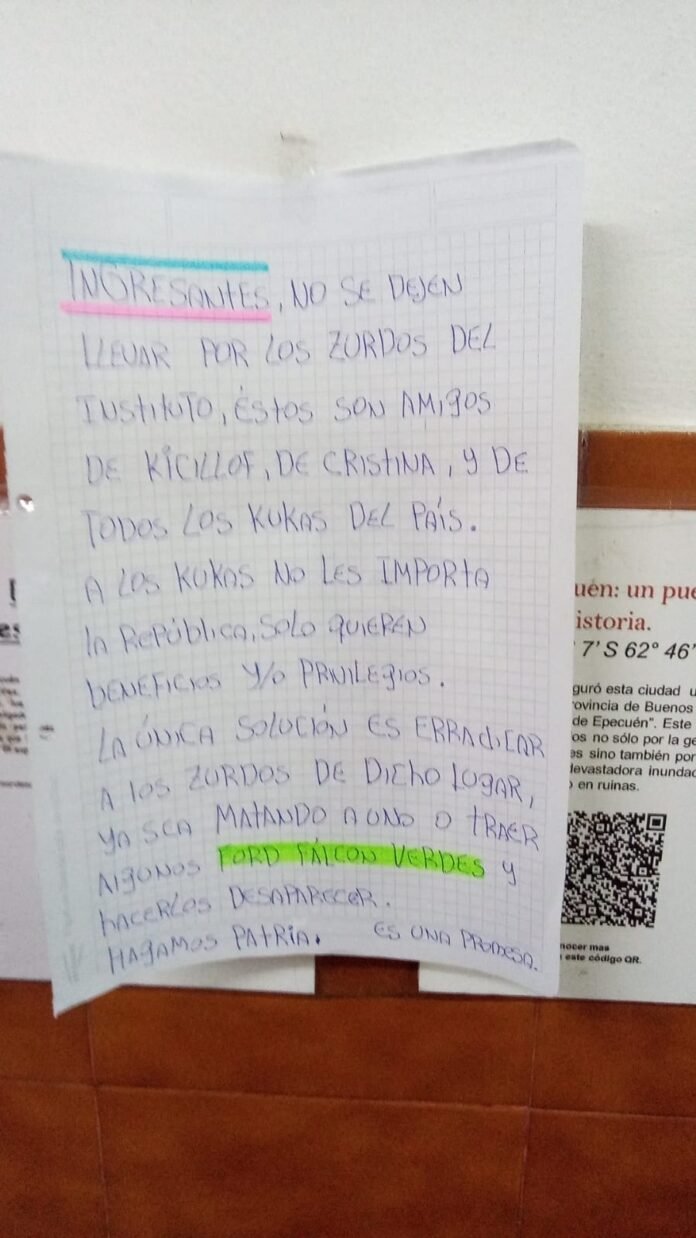 INGRESANTES, NO SE DEJEN
LLEVAR POR LOS ZURDOS DEL
INSTITUTO, ÉSTOS SON AMIGOS
DE KICILLOF, DE CRISTINA, Y DE
TODOS LOS KUKAS DEL PAÍS.
A LOS KUKAS NO LES IMPORTA
la REPÚBLICA, SOLO QUIEREN
BENEFICIOS Y/O PRIVILEGIOS.
LA ÚNICA SOLUCIÓN ES ERRADICAR
A LOS ZURDOS DE DICHO LUGAR,
YA SEA MATANDO A UNO O TRAER
ALGUNOS FORD FÁLCON VERDES Y
HACERLOS DESAPARECER.
HAGAMOS PATRIA. ES UNA PROMESA.
uén: un pue
istoria.
7'S 62° 46'
guró esta ciudad u
ovincia de Buenos
de Epecuén". Este
os no sólo por la ge
es sino también por
devastadora inundac
en ruinas.
nocer mas
este código QR.